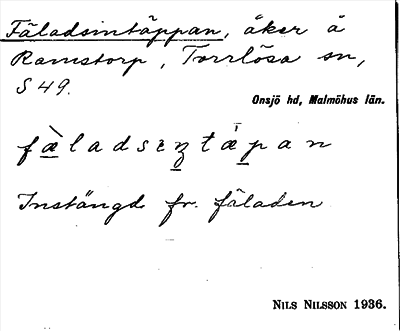 Fäladsintäppan, åker å
Ramstorp, Torrlösa sn,
S 49.
Onsjö hd, Malmöhus län.
Instängd fr. fäladen
NILS NILSSON 1936.